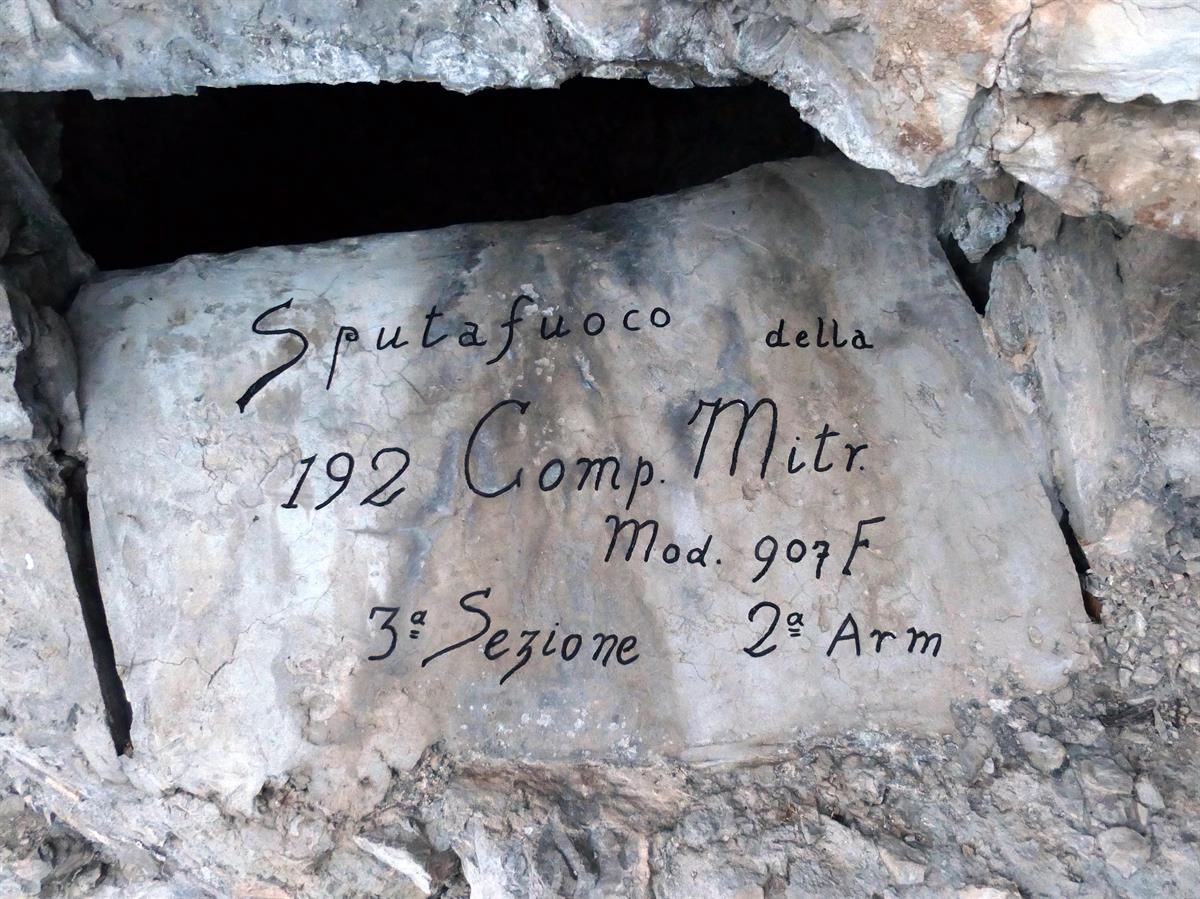 Sputafuoco della
192 Comp. Mitr.
Mod. 907 F
3ª Sezione 2ª Arm